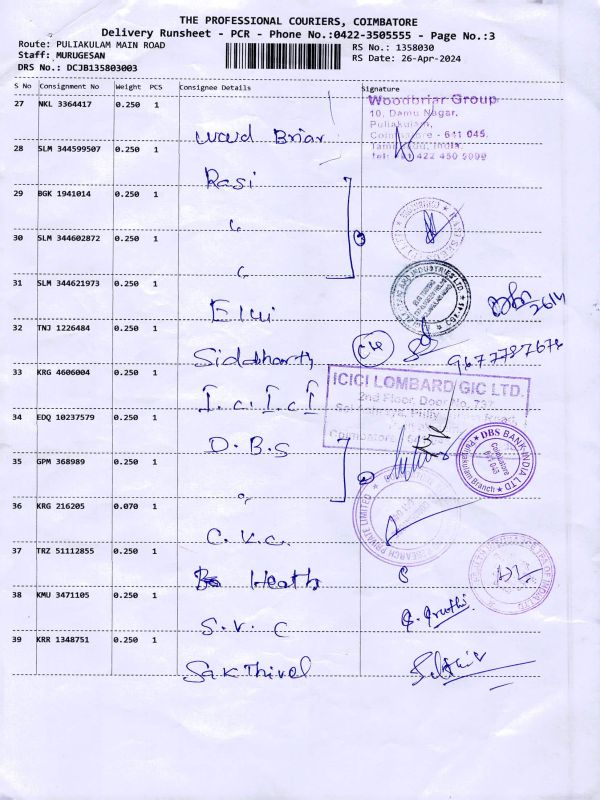 THE PROFESSIONAL COURIERS, COIMBATORE
Delivery Runsheet - PCR - Phone No.:0422-3505555 - Page No.:3
Route: PULIAKULAM MAIN ROAD
RS No.: 1358030
Staff: MURUGESAN
RS Date: 26-Apr-2024
DRS No.: DCJB135803003
S No Consignment No Weight PCS Consignee Details Signature
27 NKL 3364417 0.250 1
Woodbriar Group
10, Damu Nagar,
Puliakulam,
Coimbatore - 641 045.
Tamilnadu, India.
Tel: +91 422 450 5000
Wood Briar
28 SLM 344599507 0.250 1
Rasi
29 BGK 1941014 0.250 1
"
30 SLM 344602872 0.250 1
"
31 SLM 344621973 0.250 1
Elui
32 TNJ 1226484 0.250 1
Siddharth
9677787678
33 KRG 4606004 0.250 1
I.C.I.C.I
ICICI LOMBARD GIC LTD.
2nd Floor, Door No.
34 EDQ 10237579 0.250 1
D.B.S
DBS BANK INDIA LTD
Coimbatore
Branch
35 GPM 368989 0.250 1
"
RESEARCH PRIVATE LIMITED
36 KRG 216205 0.070 1
C.V.C.
37 TRZ 51112855 0.250 1
Heath
38 KMU 3471105 0.250 1
S.V.C
39 KRR 1348751 0.250 1
Sakthivel